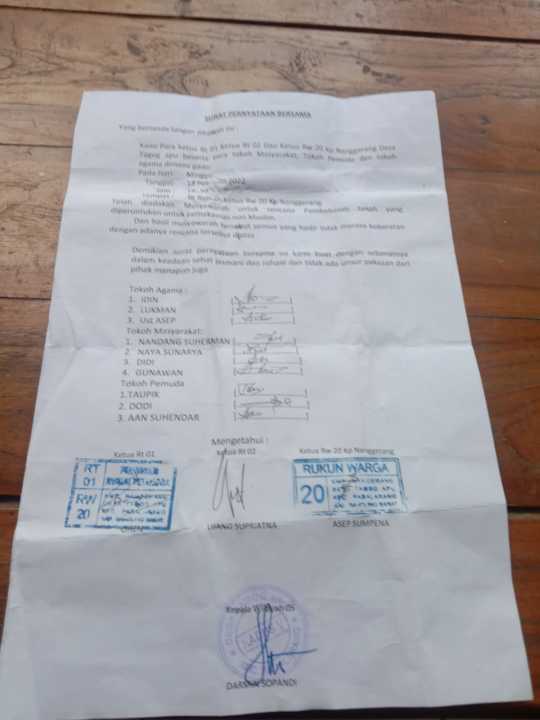 SURAT PERNYATAAN BERSAMA
Yang bertanda tangan dibawah ini :
Kami Para ketua Rt 01 Ketua Rt 02 Dan Ketua Rw 20 Kp Nanggerang Desa
Tagog apu beserta para tokoh Masyarakat, Tokoh Pemuda dan tokoh
agama dimana pada:
Pada Hari : Minggu
Tanggal : 13 2022
Jam :
Tempat : Di Rumah Ketua Rw 20 Kp Nanggerang
Telah diadakan Musyawarah untuk rencana Pembebasan tanah yang
diperuntukan untuk pemakaman non Muslim.
Dan hasil musyawarah tersebut semua yang hadir tidak merasa keberatan
dengan adanya rencana tersebut diatas
Demikian surat pernyataan bersama ini kami buat dengan sebenarnya
dalam keadaan sehat jasmani dan rohani dan tidak ada unsur paksaan dari
pihak manapun juga
Tokoh Agama :
1. IDIN
2. LUKMAN
3. Ust ASEP
Tokoh Masyarakat:
1. NANDANG SUHERMAN
2. NAYA SUNARYA
3. DIDI
4. GUNAWAN
Tokoh Pemuda
1.TAUPIK
2. DODI
3. AAN SUHENDAR
Mengetahui :
Ketua Rt 01 Ketua Rt 02 Ketua Rw 20 Kp Nanggerang
RT
01
RW
20
RUKUN WARGA
20
UJANG SUPRIATNA ASEP SUMPENA
Kepala Wilayah 05
DARMAN SOPANDI